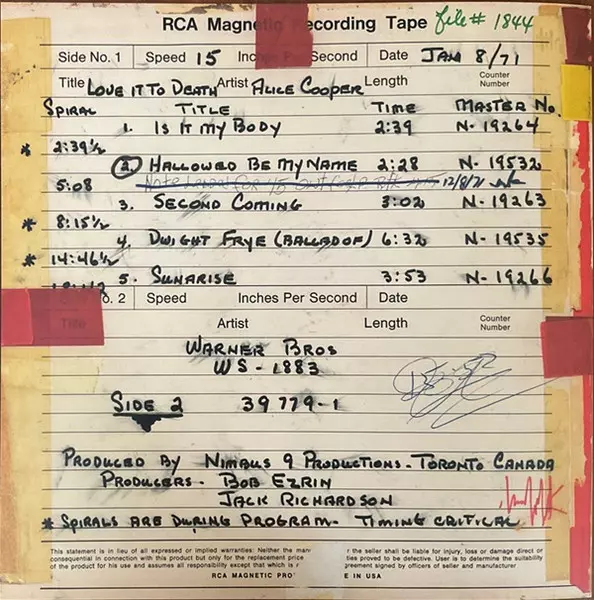 RCA Magnetic Recording Tape file# 1844
Side No. 1 Speed 15 Inches Per Second Date JAN 8/71
Title LOVE IT TO DEATH Artist ALICE COOPER Length Counter Number
SPIRAL TITLE TIME MASTER No.
1. IS IT MY BODY 2:39 N-19264
* 2:39½
2. HALLOWED BE MY NAME 2:28 N-19532
5:08 12/8/71
3. SECOND COMING 3:02 N-19263
* 8:15½
4. DWIGHT FRYE (BALLAD OF) 6:32 N-19535
* 14:46½
5. SUNARISE 3:53 N-19266
o. 2 Speed Inches Per Second Date
Title Artist Length Counter Number
WARNER BROS
WS-1883
SIDE 2 39779-1
PRODUCED BY NIMBUS 9 PRODUCTIONS - TORONTO CANADA
PRODUCERS - BOB EZRIN
JACK RICHARDSON
* SPIRALS ARE DURING PROGRAM - TIMING CRITICAL
This statement is in lieu of all expressed or implied warranties: Neither the man r the seller shall be liable for injury, loss or damage direct or
consequential in connection with this product but only for the replacement price ties proved to be defective. User is to determine the suitability
of the product for his use and assumes all responsibility except that which is agreement signed by officers of seller and manufacturer
RCA MAGNETIC PRO E IN USA